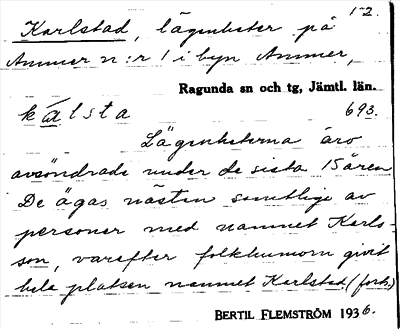 1-2.
Karlstad, lägenheter på
Ammer n:r 1 i byn Ammer,
Ragunda sn och tg, Jämtl. län.
kálsta 693.
Lägenheterna äro
avsöndrade under de sista 15 åren
De ägas nästan samtliga av
personer med namnet Karls-
son, varefter folkhumorn givit
hela platsen namnet Karlstad. (forts.)
BERTIL FLEMSTRÖM 1936.